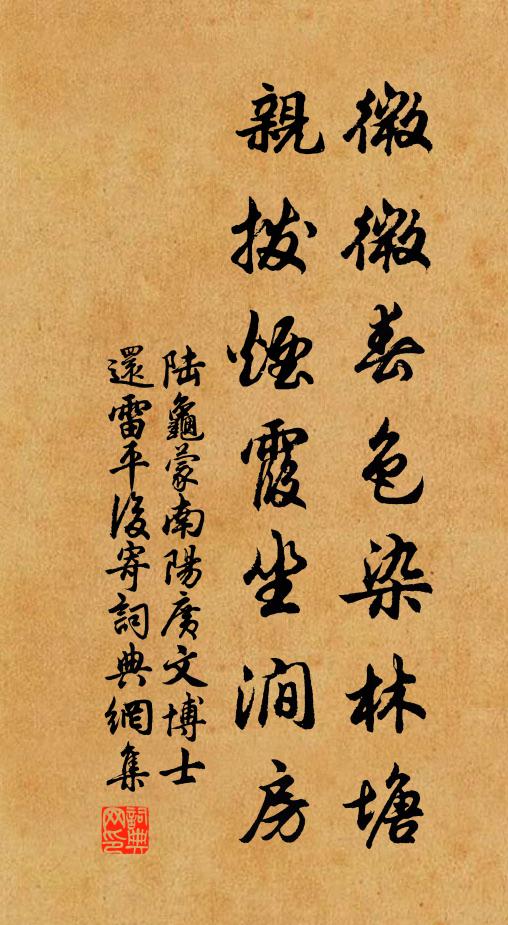 微微春色染林塘
親撥煙霞坐澗房
陆龜蒙南陽廣文博士
還雷平後寄詞典網集
詞典网印